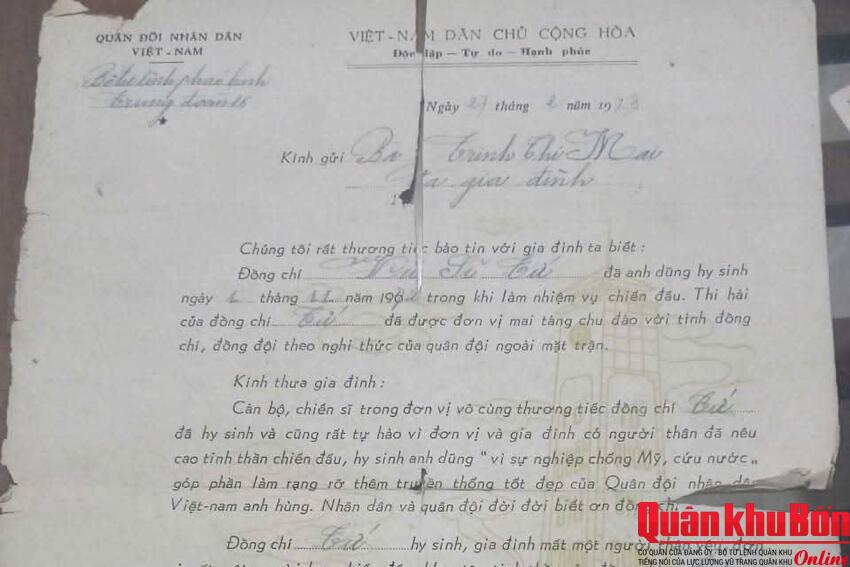 QUÂN ĐỘI NHÂN DÂN
VIỆT-NAM
Bộ tư lệnh pháo binh
Trung đoàn 16
VIỆT-NAM DÂN CHỦ CỘNG HÒA
Độc lập — Tự do — Hạnh phúc
Ngày 27 tháng 2 năm 1973
Kính gửi Bà Trịnh Thị Mai
và gia đình
Chúng tôi rất thương tiếc báo tin với gia đình ta biết:
Đồng chí Vũ Sĩ Tứ đã anh dũng hy sinh
ngày tháng 11 năm 19 trong khi làm nhiệm vụ chiến đấu. Thi hài
của đồng chí Tứ đã được đơn vị mai táng chu đáo với tình đồng
chí, đồng đội theo nghi thức của quân đội ngoài mặt trận.
Kính thưa gia đình:
Cán bộ, chiến sĩ trong đơn vị vô cùng thương tiếc đồng chí Tứ
đã hy sinh và cũng rất tự hào vì đơn vị và gia đình có người thân đã nêu
cao tinh thần chiến đấu, hy sinh anh dũng "vì sự nghiệp chống Mỹ, cứu nước„
góp phần làm rạng rỡ thêm truyền thống tốt đẹp của Quân đội nhân dân
Việt-nam anh hùng. Nhân dân và quân đội đời đời biết ơn đồng chí
Đồng chí Tứ hy sinh, gia đình mất một người thân yêu, đơn
Quân khu Bốn
Online
CƠ QUAN CỦA ĐẢNG ỦY - BỘ TƯ LỆNH QUÂN KHU
TIẾNG NÓI CỦA LỰC LƯỢNG VŨ TRANG QUÂN KHU